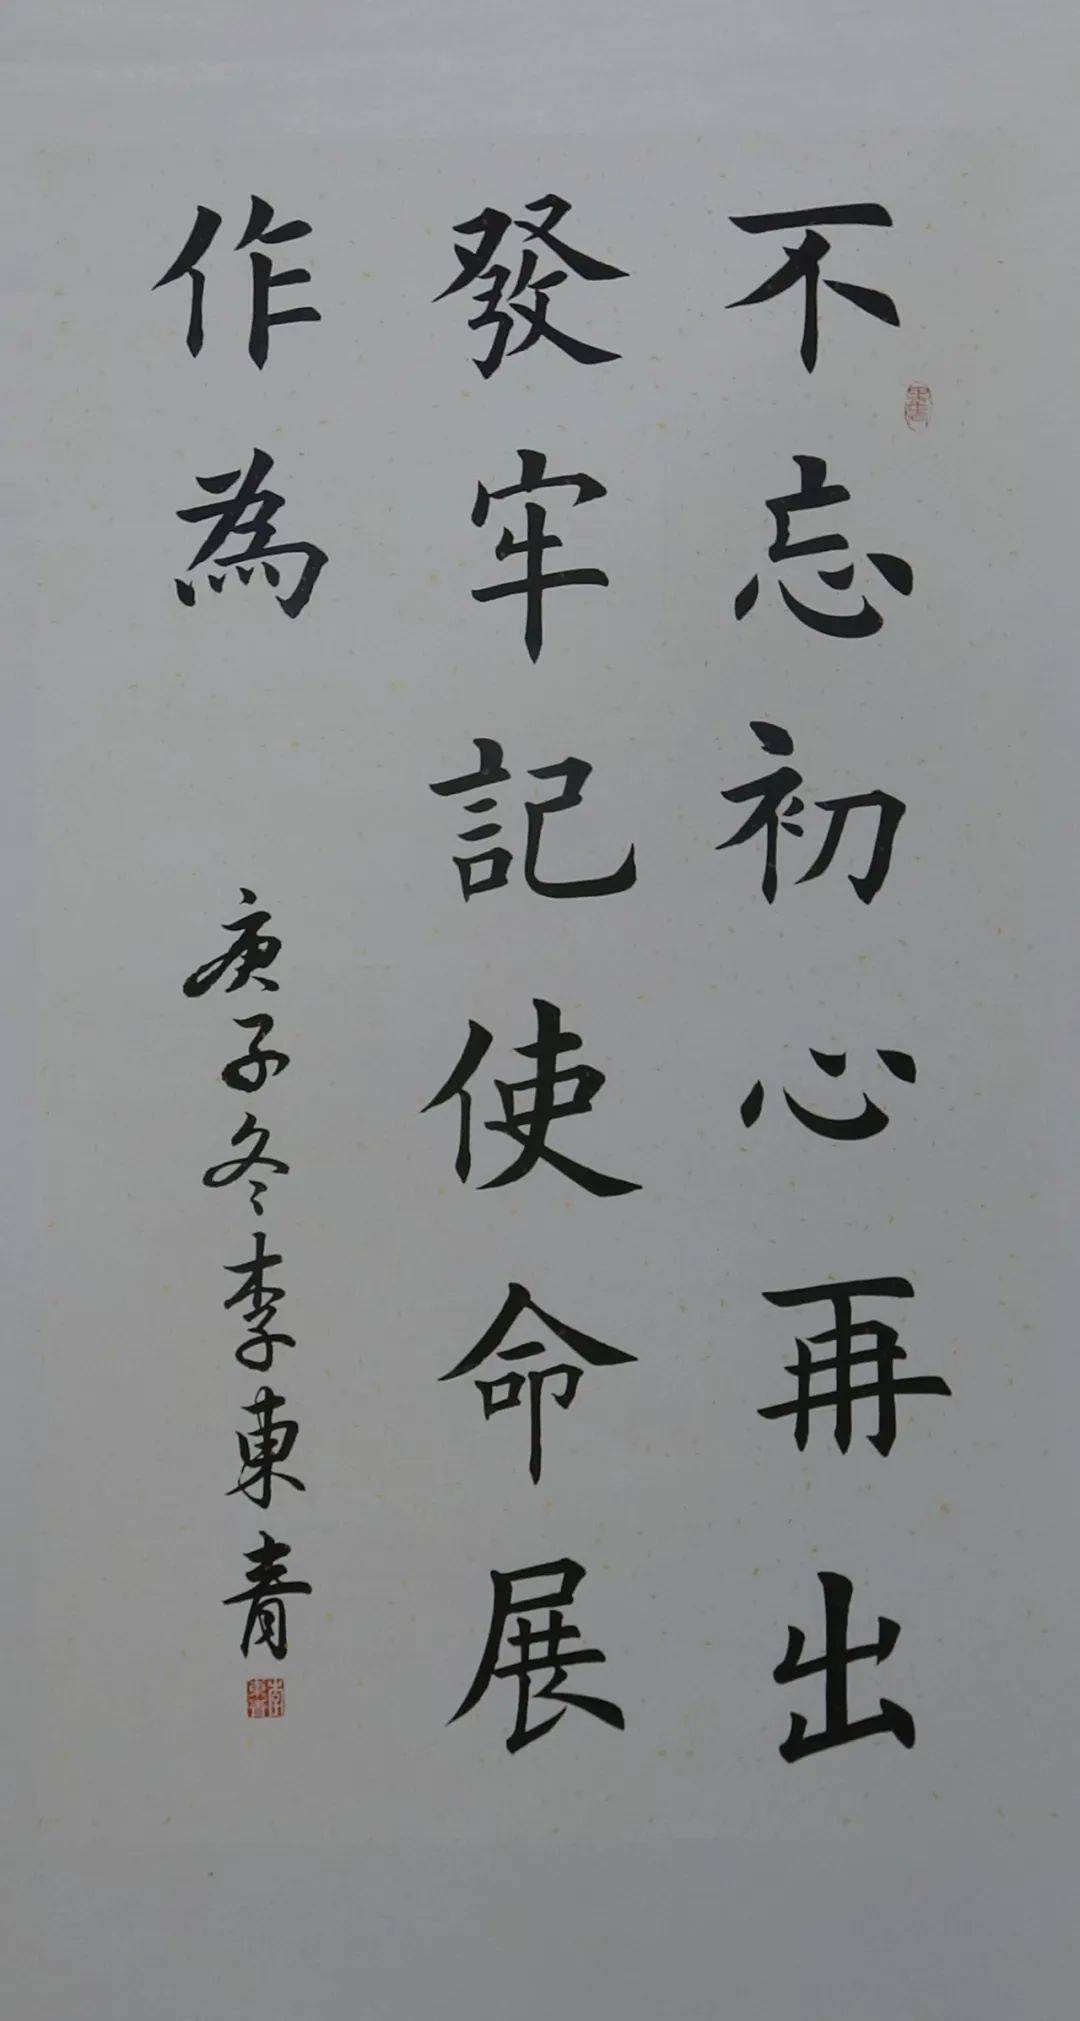 不忘初心再出
發牢記使命展
作為
庚子冬李東青
李東青